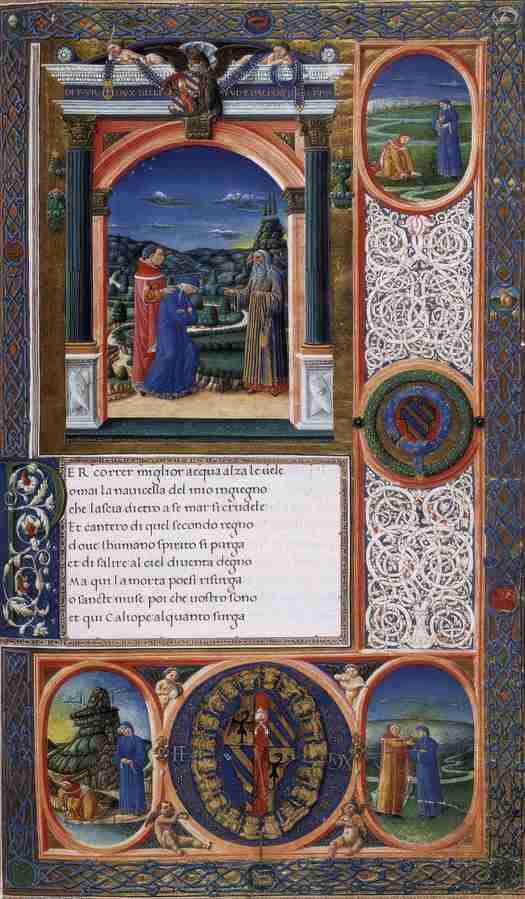 PER correr miglior acqua alza le uele
omai la nauicella del mio ingiegno
che lascia dietro a se mar si crudele
Et cantero di quel secondo regno
doue lhumano spirito si purga
et di salire al ciel diuenta degno
Ma qui la morta poesi risurga
o sancte muse poi che uostro sono
et qui Caliope alquanto surga
DVX